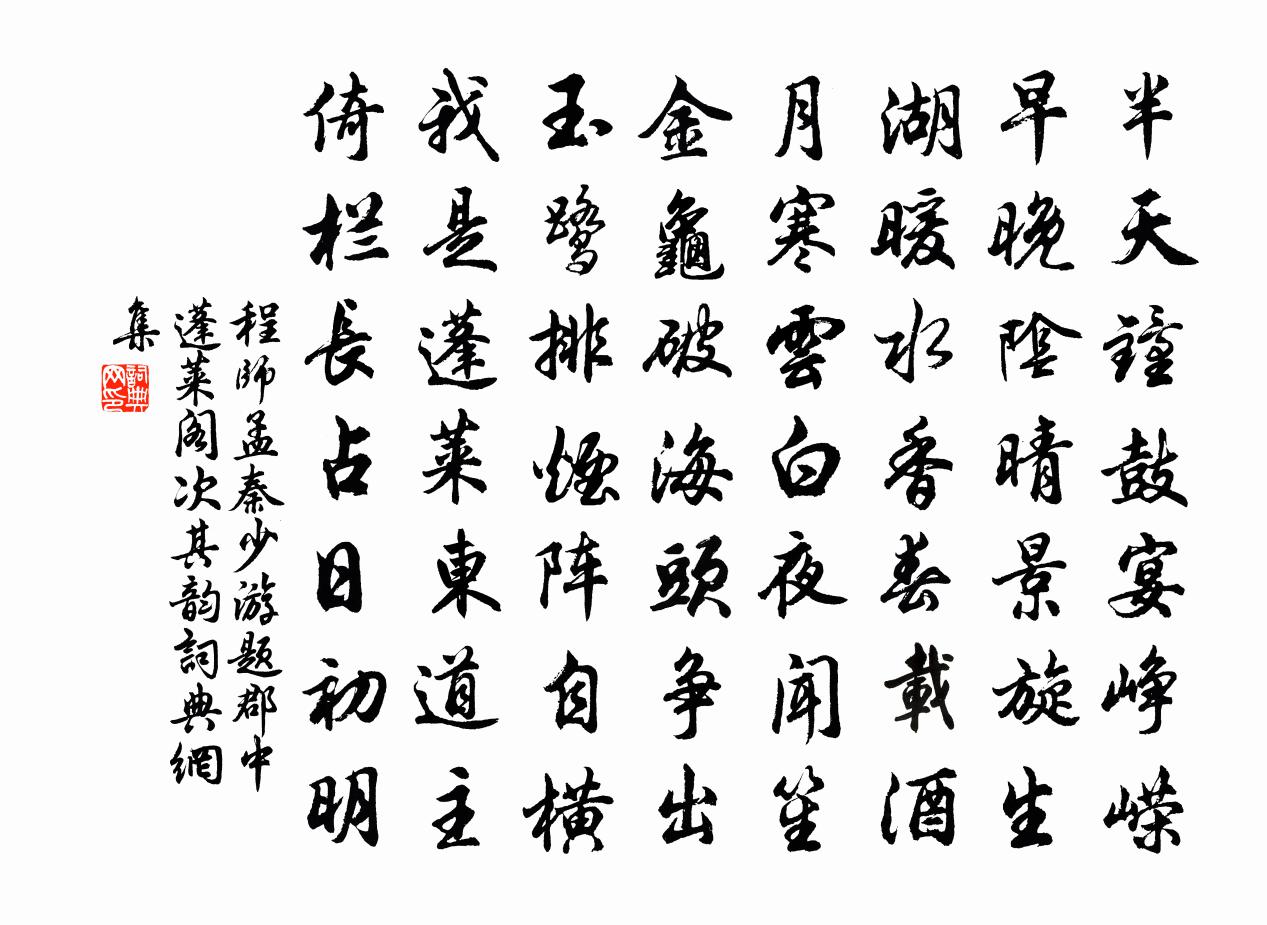 半天鐘鼓宴峥嵘
早晚陰晴景旋生
湖暖水香春載酒
月寒雲白夜闻笙
金龜破海頭争出
玉鹭排煙阵自横
我是蓬莱東道主
倚栏長占日初明
程師孟秦少游题郡中
蓬莱阁次其韵詞典網
集
詞典
网印